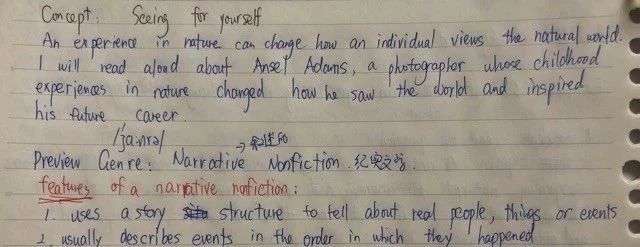 Concept: Seeing for yourself
An experience in nature can change how an individual views the natural world.
I will read aloud about Ansel Adams, a photographer whose childhood
experiences in nature changed how he saw the world and inspired
his future career.
/'ʒa:nrə/ → 叙述的
Preview Genre: Narrative Nonfiction. 纪实文学.
features of a narrative nonfiction:
1. uses a story structure to tell about real people, things or events
2. usually describes events in the order in which they happened